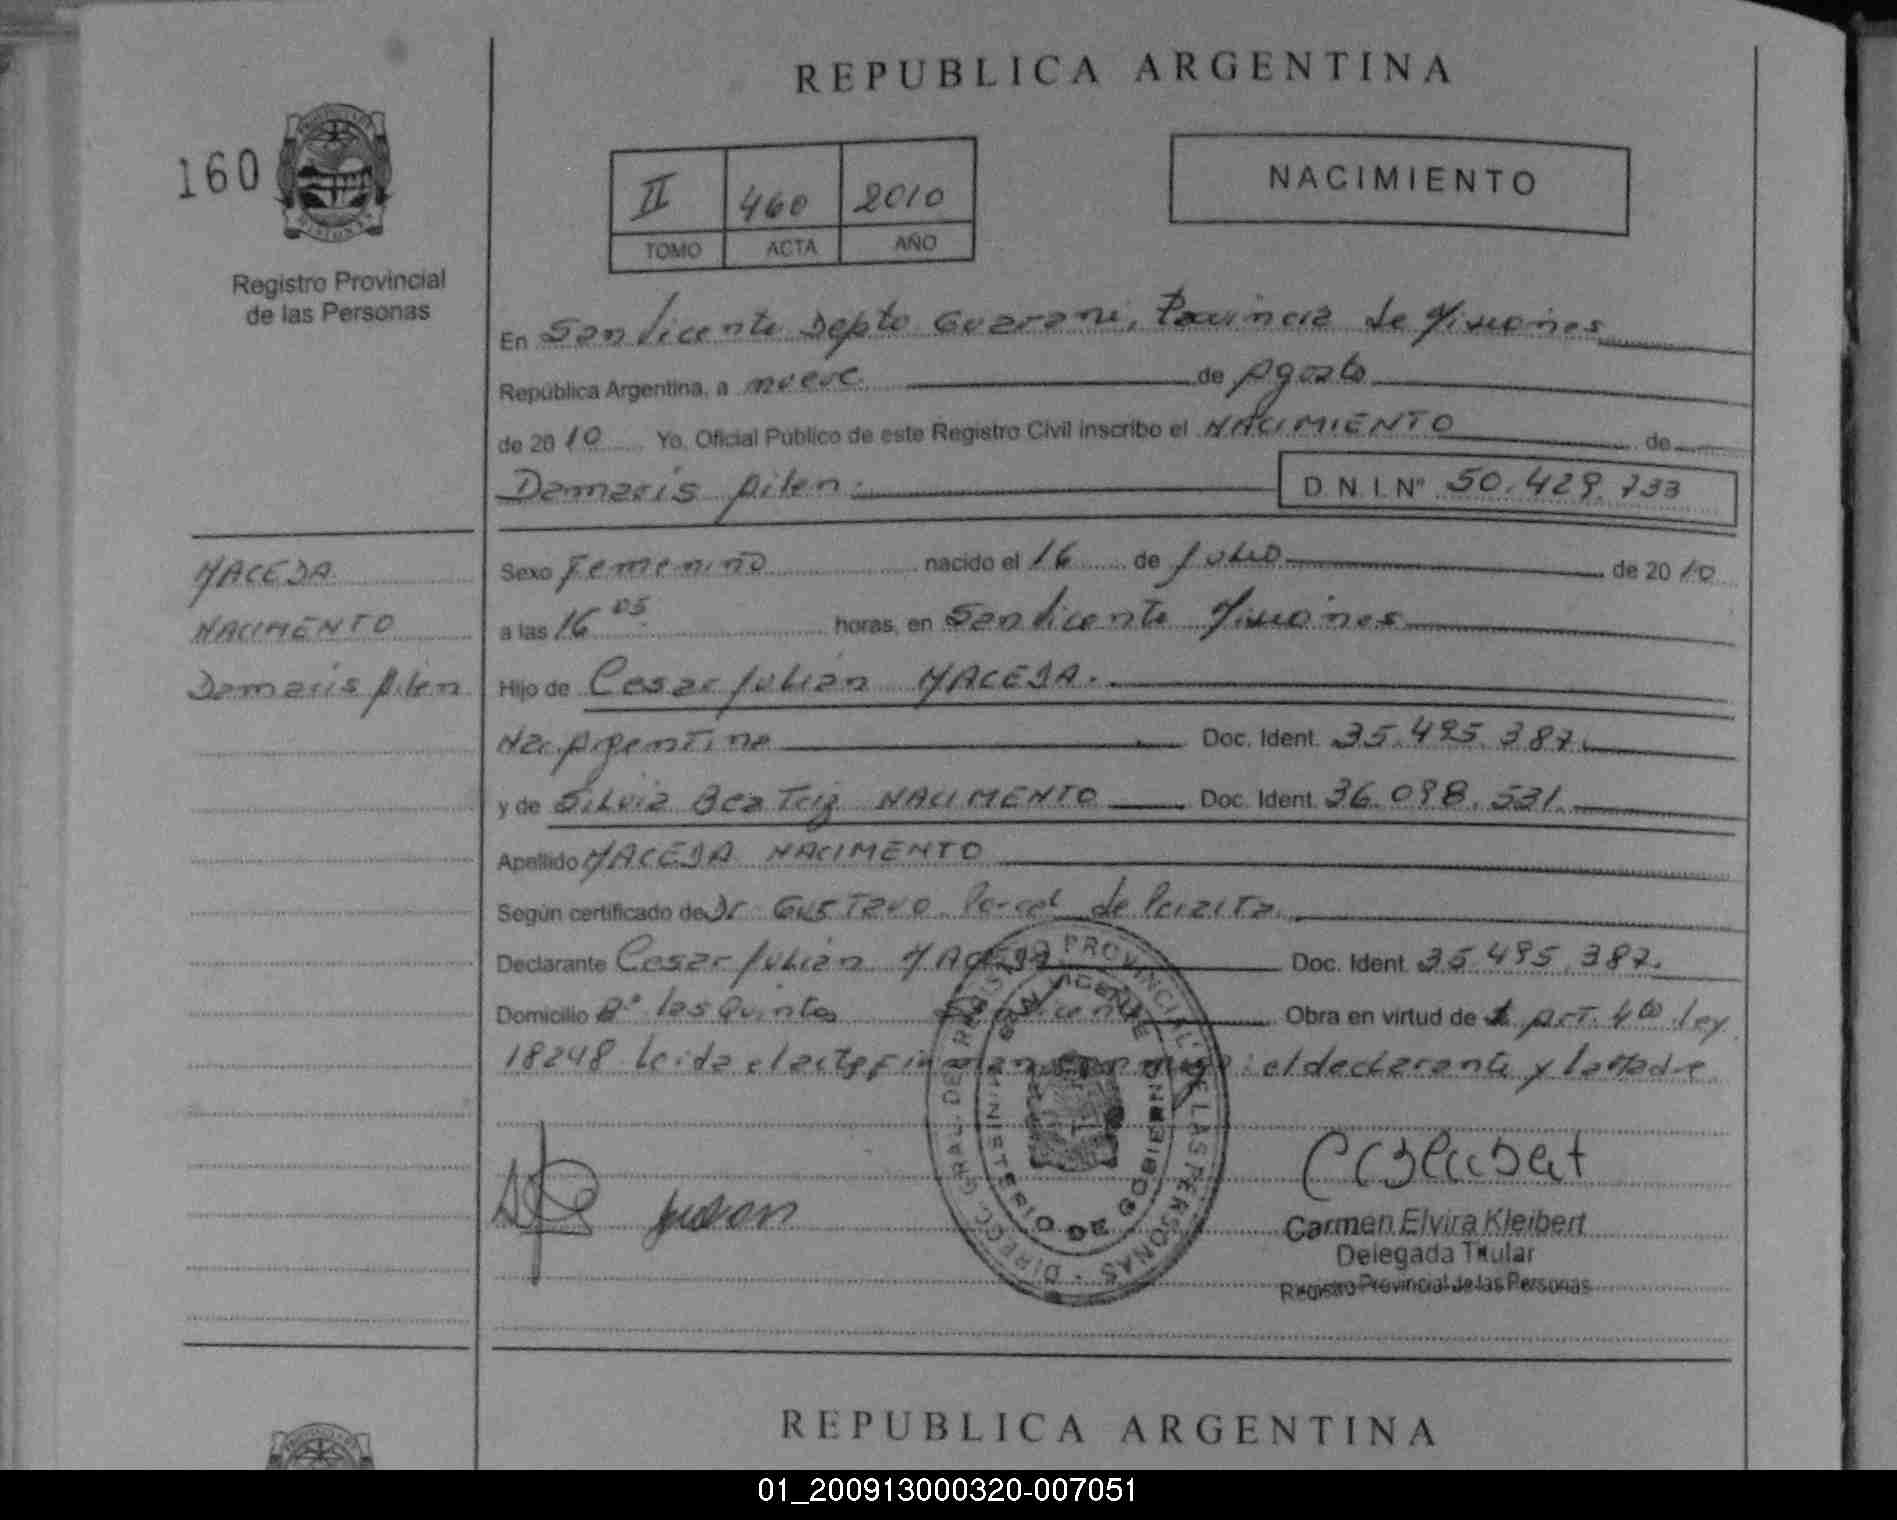 REPUBLICA ARGENTINA
160
II 460 2010
TOMO ACTA AÑO
NACIMIENTO
Registro Provincial
de las Personas
En San Vicente Depto Guarani, Provincia de Misiones
República Argentina, a nueve de Agosto
de 2010 Yo, Oficial Público de este Registro Civil inscribo el NACIMIENTO de
Damaris Ailen. D.N.I. Nº 50.429.733
MACEDA
NACIMENTO
Damaris Ailen
Sexo Femenino nacido el 16 de Julio de 2010
a las 16 05 horas, en San Vicente Misiones
Hijo de Cesar Julián MACEDA.
Nac. Argentina Doc. Ident. 35.495.387.
y de Silvia Beatriz NACIMENTO Doc. Ident. 36.098.531.
Apellido MACEDA NACIMENTO
Según certificado de Dr Gustavo de
Declarante Cesar Julián MACEDA Doc. Ident. 35.495.387.
Domicilio Bº las Quintas San Vicente Obra en virtud de Art. 4to ley
18248 Leida el acta firman conmigo: el declarante y la Madre
DIRECC. GRAL. DE REGISTRO PROVINCIAL DE LAS PERSONAS
SAN VICENTE
MINISTERIO DE GOBIERNO
Carmen Elvira Kleibert
Delegada Titular
Registro Provincial de las Personas
REPUBLICA ARGENTINA
01_200913000320-007051